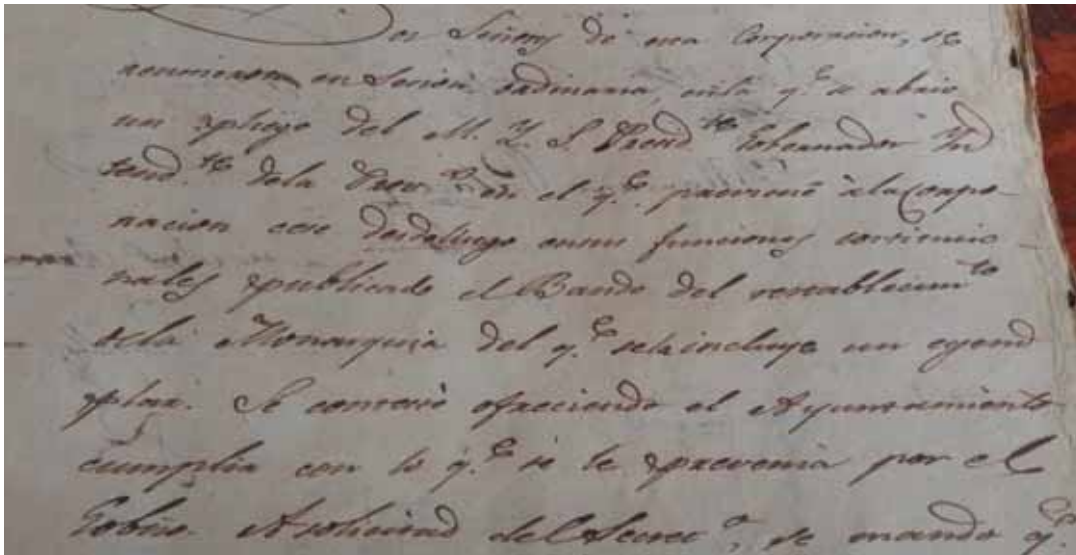 os Señores de esta Corporacion, se
reunieron en Sesion ordinaria, en la q.e se abrio
un pliego del M. Y. S. Presid.te Gobernador Yn
tend.te de la Prov.a en el q.e previene à la Corpo-
racion cese desdeluego en sus funciones
nales publicado el Bando del restablecim.to
de la Monarquia del q.e se la incluye un egem
plar. Se contestó ofreciendo el Ayuntamiento
cumplir con lo q.e se le prevenia por el
Gobno. A solicitud del Secret.o, se mando q.e